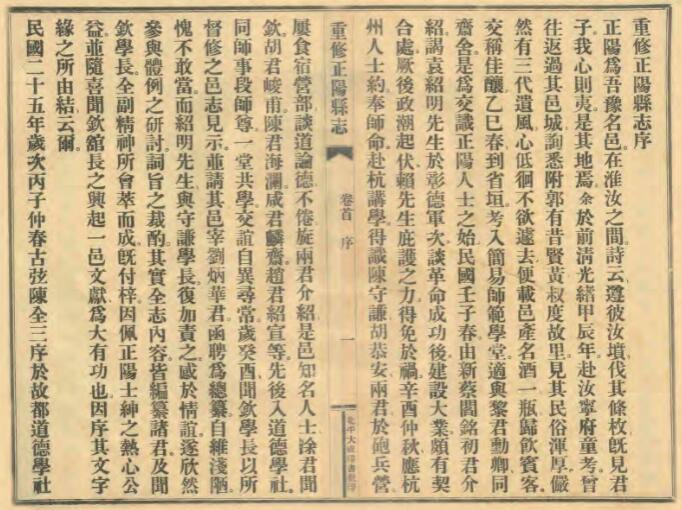 重修正陽縣志序
正陽爲吾豫名邑。在淮汝之間。詩云遵彼汝墳。伐其條枚。旣見君
子。我心則夷。是其地焉。余於前淸光緒甲辰年。赴汝寧府童考。曾
往返過其邑城。詢悉附郭有昔賢黃叔度故里。見其民俗渾厚。儼
然有三代遺風。心低徊不欲遽去。便載邑產名酒一瓶。歸飮賓客。
交稱佳釀。乙巳春到省垣。考入簡易師範學堂。適與黎君勳卿同
齋舍。是爲交識正陽人士之始。民國壬子春。由新蔡閻銘初君介
紹謁袁紹明先生於彰德軍次。談革命成功後建設大業。頗有契
合處。厥後政潮起伏。賴先生庇護之力。得免於禍。辛酉仲秋應杭
州人士約。奉師命赴杭講學。得識陳守謙胡恭安兩君於砲兵營。
重修正陽縣志
卷首 序
一
屢食宿營部。談道論德不倦。旋兩君介紹是邑知名人士涂君聞
欽。胡君峻甫。陳君海瀾。戚君麟齋。趙君紹宣等。先後入道德學社。
同師事段師尊。一堂共學。交誼自異尋常。歲癸酉聞欽學長以所
督修之邑志見示。並請其邑宰劉炳華君。函聘爲總纂。自維淺陋。
愧不敢當。而紹明先生與守謙學長。復加責之。感於情誼。遂欣然
參與體例之硏討。詞旨之裁酌。其實全志內容。皆編纂諸君。及聞
欽學長。全副精神所會萃而成。旣付梓。因佩正陽士紳之熱心公
益。並隨喜聞欽館長之興起一邑文獻。爲大有功也。因序其文字
緣之所由結云爾。
民國二十五年歲次丙子仲春古弦陳全三序於故都道德學社